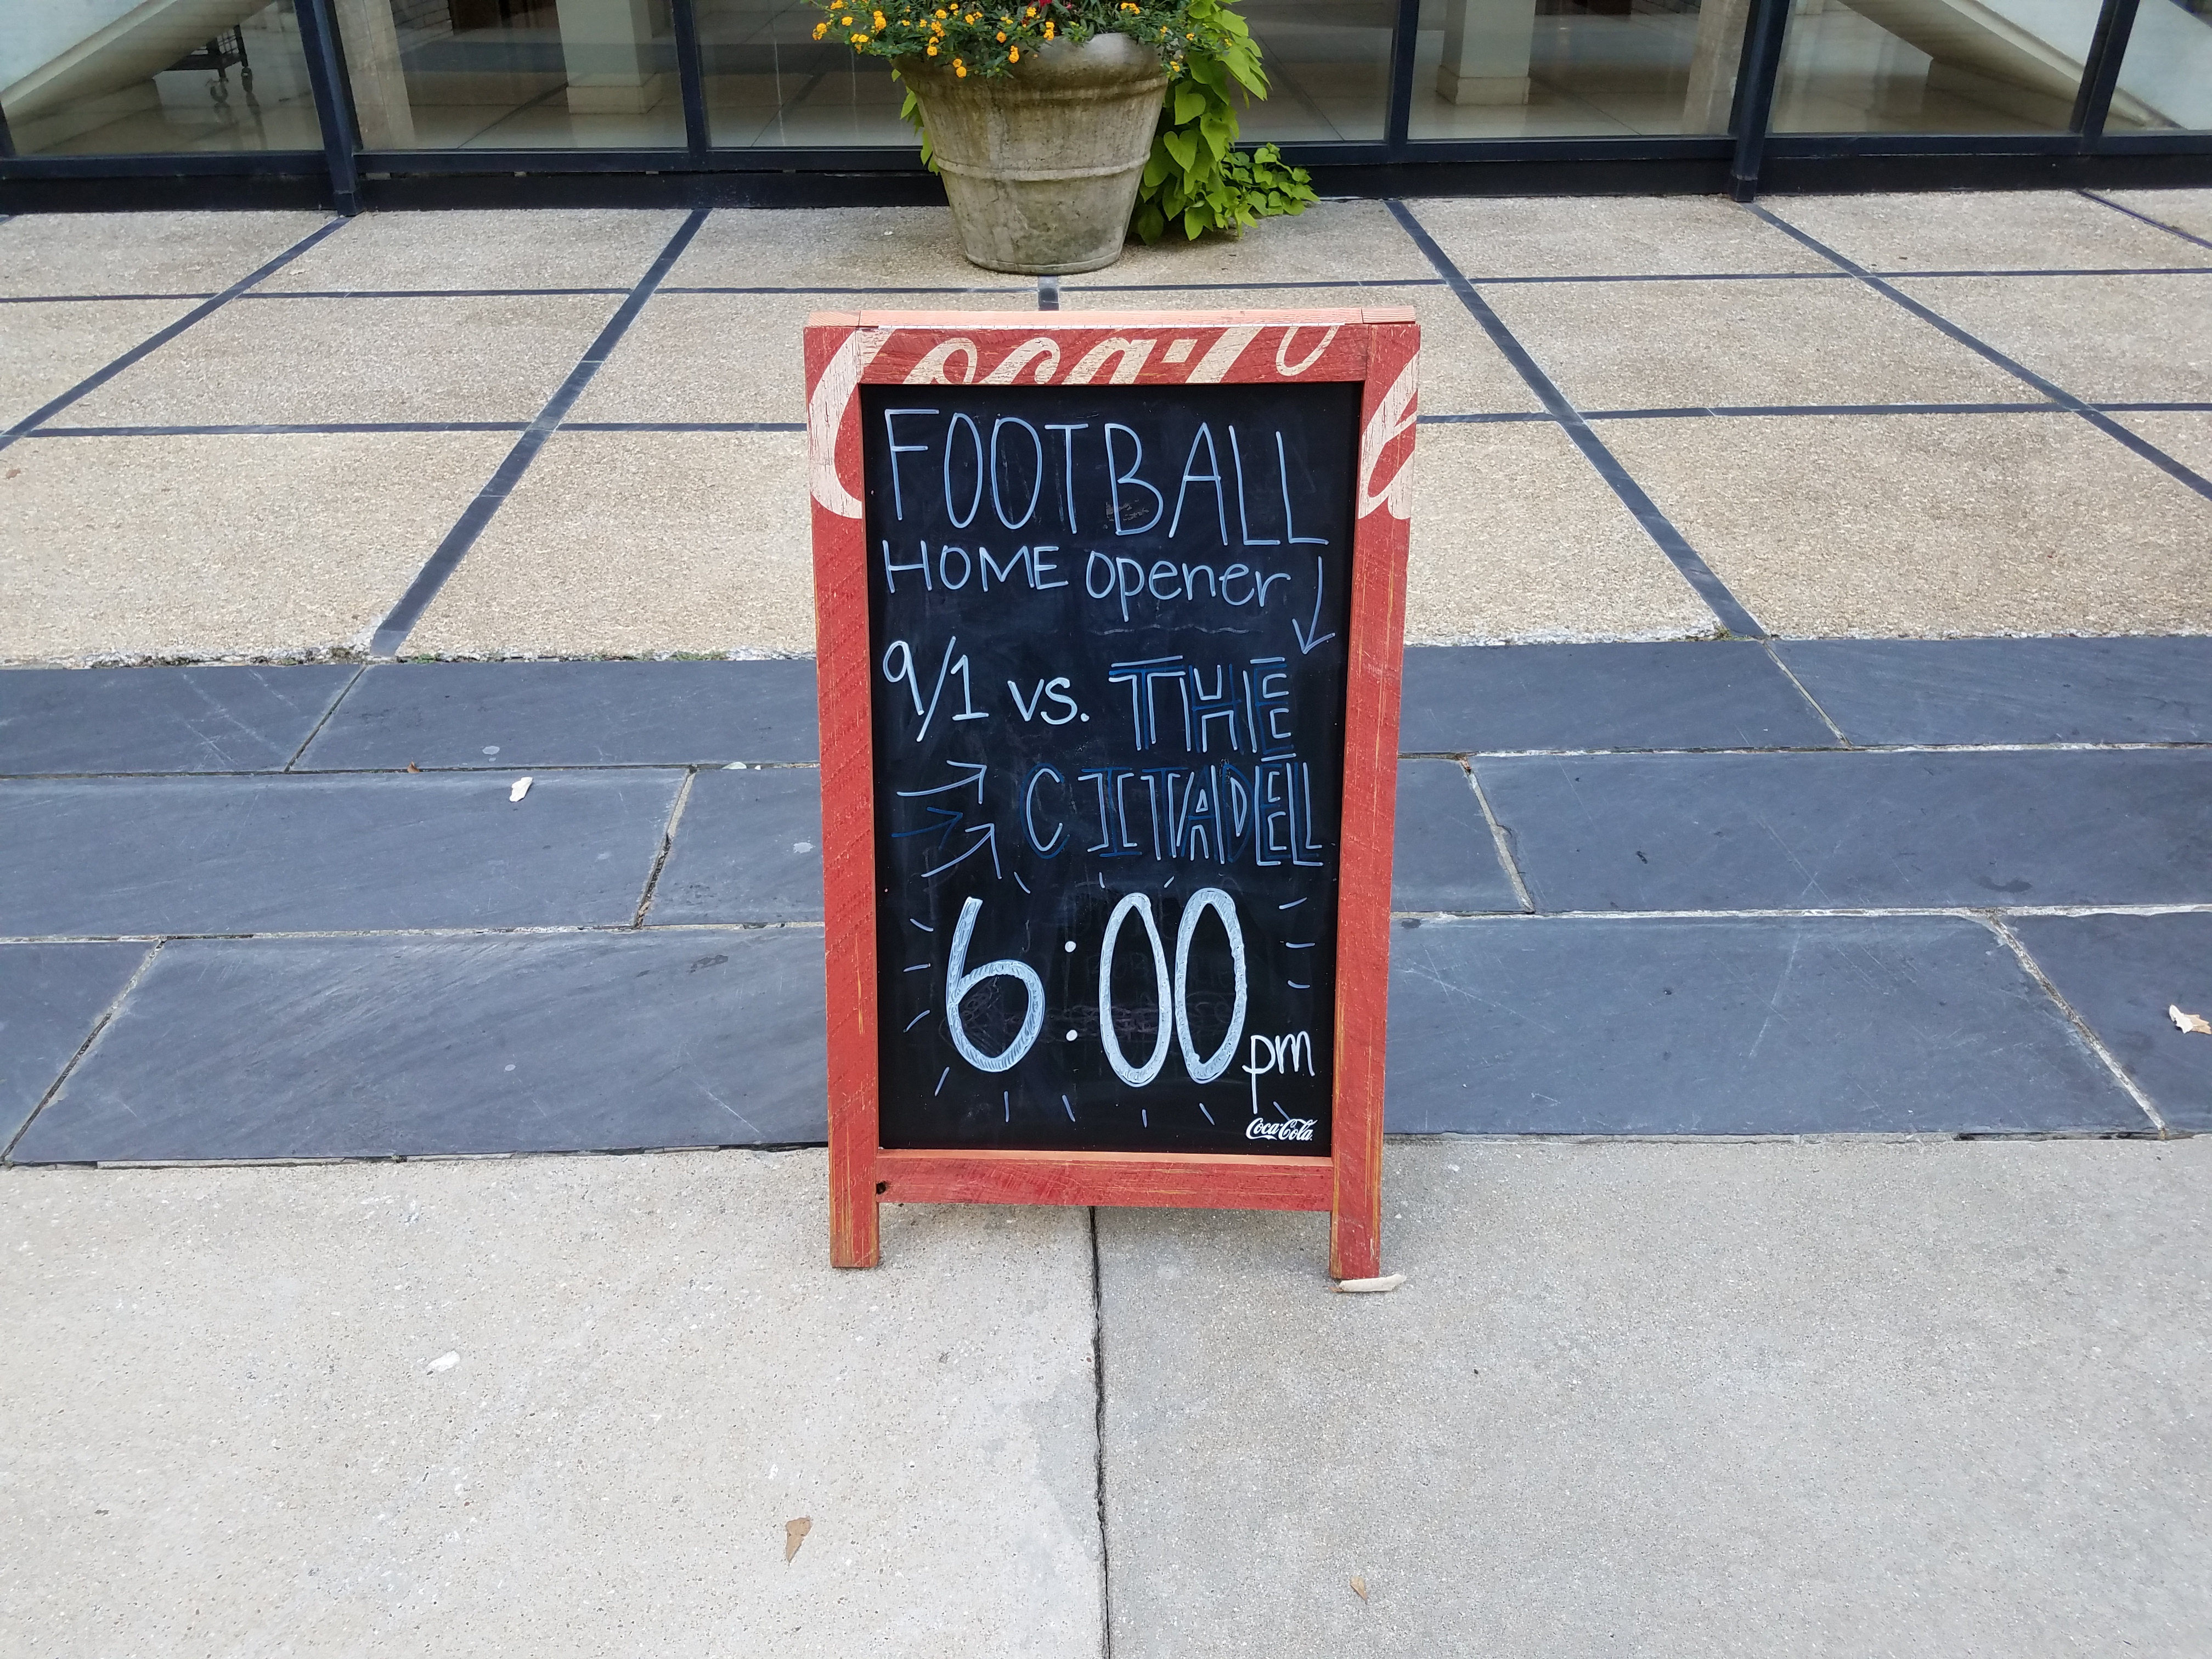 Coca-Co a
FOOTBALL
HOME opener
9/1 vs. THE
CITADEL
6:00 pm
Coca-Cola